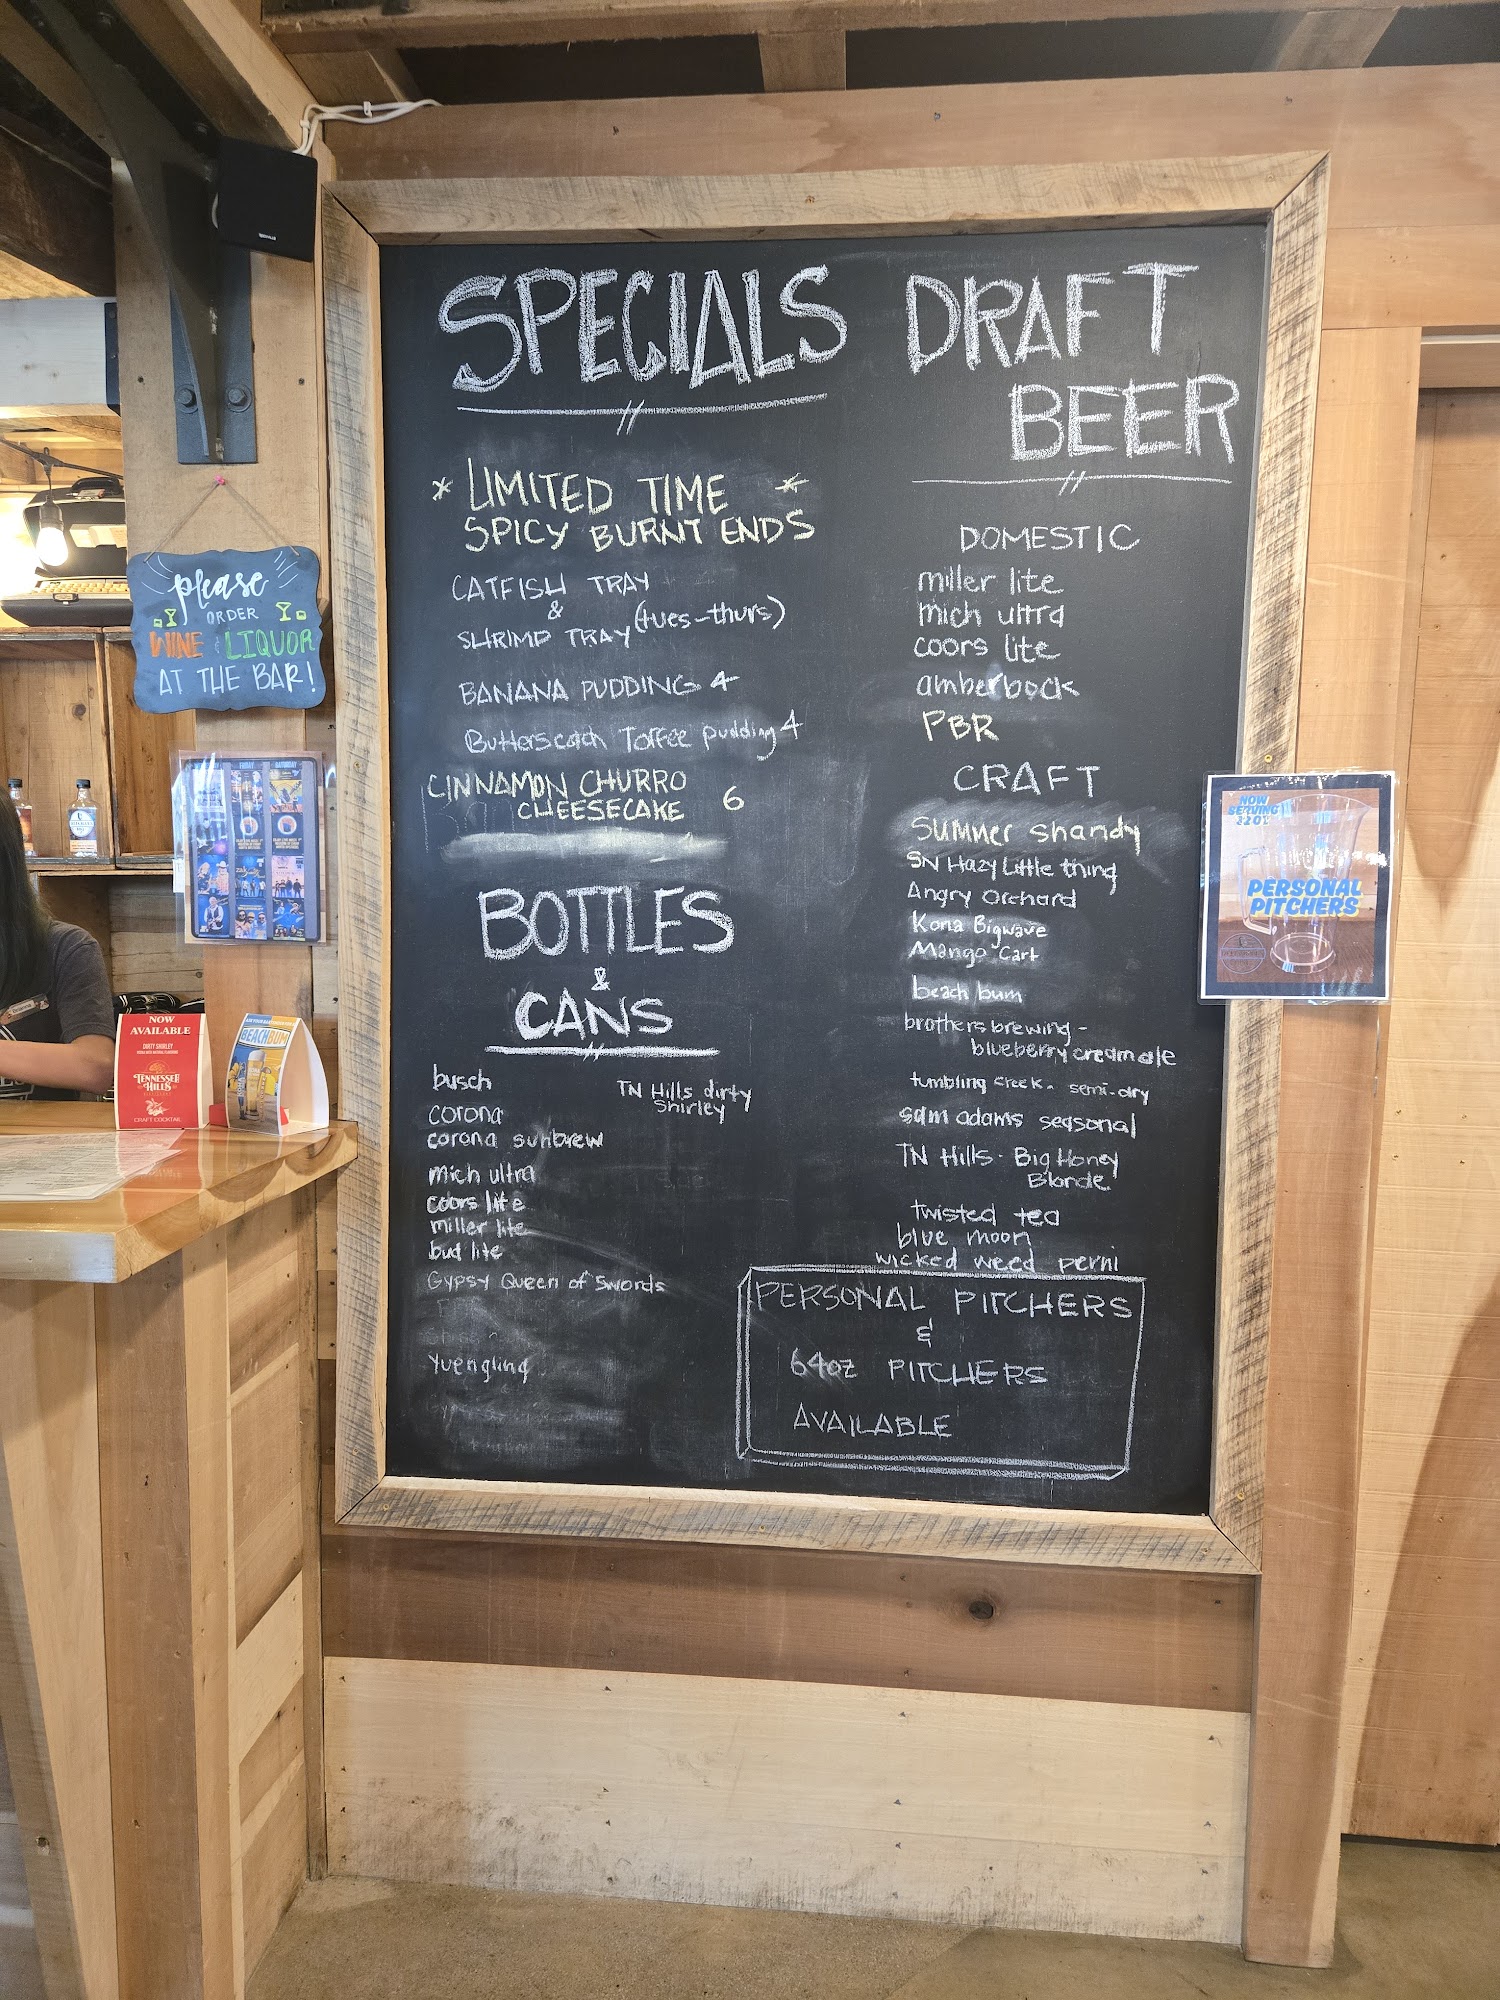 SPECIALS
LIMITED TIME
SPICY BURNT ENDS
CATFISH TRAY
&
SHRIMP TRAY (tues-thurs)
BANANA PUDDING 4
Butterscotch Toffee pudding 4
CINNAMON CHURRO
CHEESECAKE 6
BOTTLES
&
CANS
busch
corona
corona sunbrew
mich ultra
coors lite
miller lite
bud lite
Gypsy Queen of Swords
Yuengling
TN Hills dirty
Shirley
DRAFT
BEER
DOMESTIC
miller lite
mich ultra
coors lite
amberbock
PBR
CRAFT
Summer shandy
SN Hazy Little thing
Angry Orchard
Kona Bigwave
Mango Cart
beach bum
brothers brewing -
blueberry cream ale
tumbling creek - semi-dry
sam adams seasonal
TN Hills - Big Honey
Blonde
twisted tea
blue moon
wicked weed perni
PERSONAL PITCHERS
&
64oz PITCHERS
AVAILABLE
please
ORDER
WINE & LIQUOR
AT THE BAR!
FRIDAY
SATURDAY
NOW
AVAILABLE
DIRTY SHIRLEY
TENNESSEE
HILLS
CRAFT COCKTAIL
BEACHBUM
NOW
SERVING
PERSONAL
PITCHERS